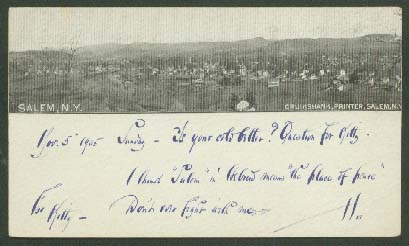 SALEM, N.Y.
CRUIKSHANK, PRINTER, SALEM, N.Y.
Nov. 5 1905 Sunday - Is your cold better? Question for Kitty -
I think "Salem" in Hebrew means "the place of peace"
For Kitty - Don't ever fight with me -